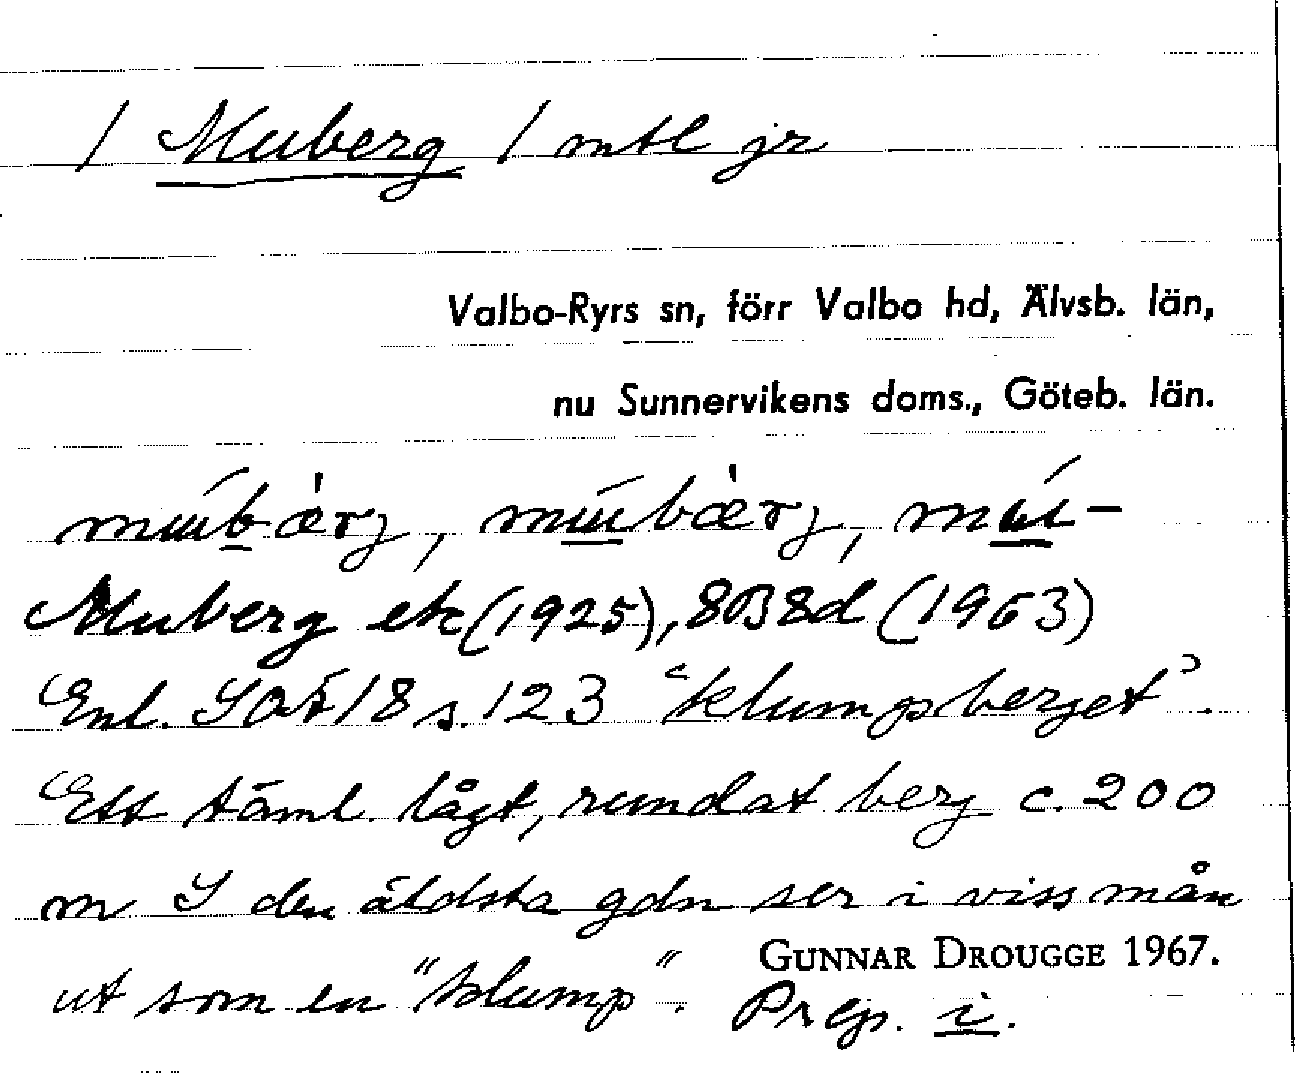 / Muberg 1 mtl jr
Valbo-Ryrs sn, förr Valbo hd, Älvsb. län,
nu Sunnervikens doms., Göteb. län.
Muberg ek (1925), 8B8d (1963)
Enl. SOÄ 18 s. 123 "klumpberget".
Ett täml. lågt, rundat berg c. 200
m S den äldsta gdn ser i viss mån
ut som en "klump". Prep. i.
GUNNAR DROUGGE 1967.